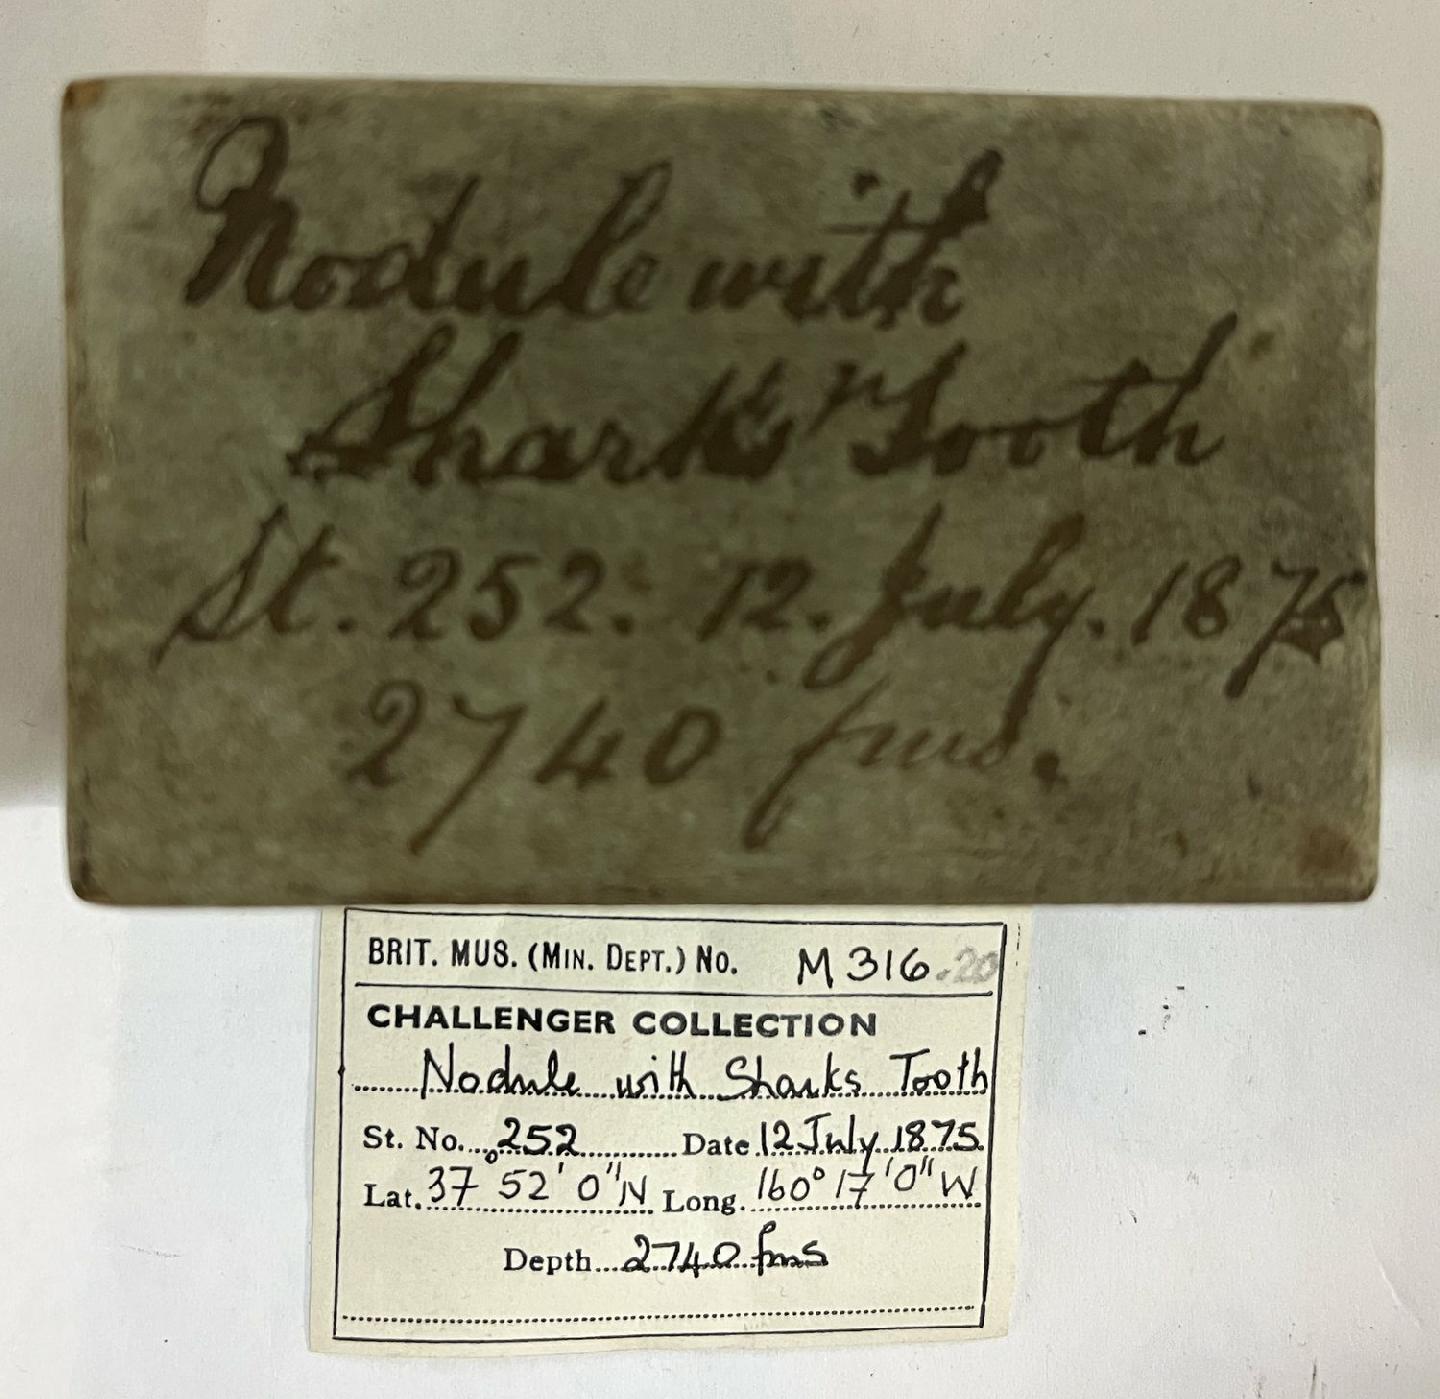 Nodule with
Sharks' Tooth
St. 252. 12. July. 1875
2740 fms.
BRIT. MUS. (MIN. DEPT.) No. M316.20
CHALLENGER COLLECTION
Nodule with Sharks Tooth
St. No. 252 Date 12 July 1875
Lat. 37° 52' 0" N Long. 160° 17' 0" W
Depth 2740 fms